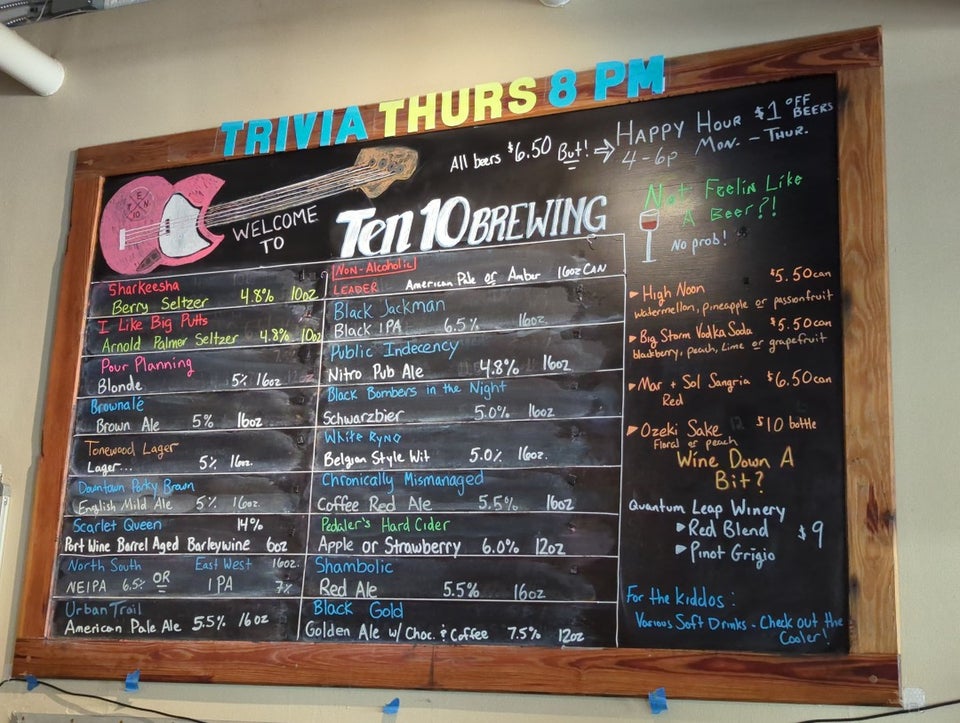 TRIVIA THURS 8 PM
All beers $6.50 But! ⇒ HAPPY HOUR $1 OFF BEERS
4-6p MON. - THUR.
TEN 10
WELCOME
TO
Ten 10 BREWING
Sharkeesha
Berry Seltzer 4.8% 10oz
I Like Big Putts
Arnold Palmer Seltzer 4.8% 10oz
Pour Planning
Blonde 5% 16oz
Brownalé
Brown Ale 5% 16oz
Tonewood Lager
Lager... 5% 16oz.
Downtown Porky Brown
English Mild Ale 5% 16oz
Scarlet Queen 14%
Port Wine Barrel Aged Barleywine 6oz
North South East West 16oz.
NEIPA 6.5% OR IPA 7%
Urban Trail
American Pale Ale 5.5% 16oz
Non-Alcoholic
LEADER American Pale or Amber 16oz CAN
Black Jackman
Black IPA 6.5% 16oz.
Public Indecency
Nitro Pub Ale 4.8% 16oz
Black Bombers in the Night
Schwarzbier 5.0% 16oz
White Ryno
Belgian Style Wit 5.0% 16oz.
Chronically Mismanaged
Coffee Red Ale 5.5% 16oz
Pedaler's Hard Cider
Apple or Strawberry 6.0% 12oz
Shambolic
Red Ale 5.5% 16oz
Black Gold
Golden Ale w/ Choc. & Coffee 7.5% 12oz
Not Feelin Like
A Beer?!
No prob!
► High Noon $5.50 can
watermellon, pineapple or passionfruit
► Big Storm Vodka Soda $5.50 can
blackberry, peach, lime or grapefruit
► Mar + Sol Sangria $6.50 can
Red
► Ozeki Sake $10 bottle
Floral or peach
Wine Down A
Bit?
Quantum Leap Winery
► Red Blend $9
► Pinot Grigio
For the kiddos:
Various Soft Drinks - Check out the
Cooler!